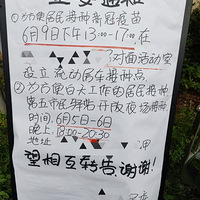 重要通知
①为方便居民接种新冠疫苗
6月9日下午13:00-17:00在
3对面活动室
设立 的居民接种点
②为方便白天工作的居民接种
开放夜场接种
时间:6月5日-6日
晚上:18:00-20:30
地址
望相互转告谢谢!